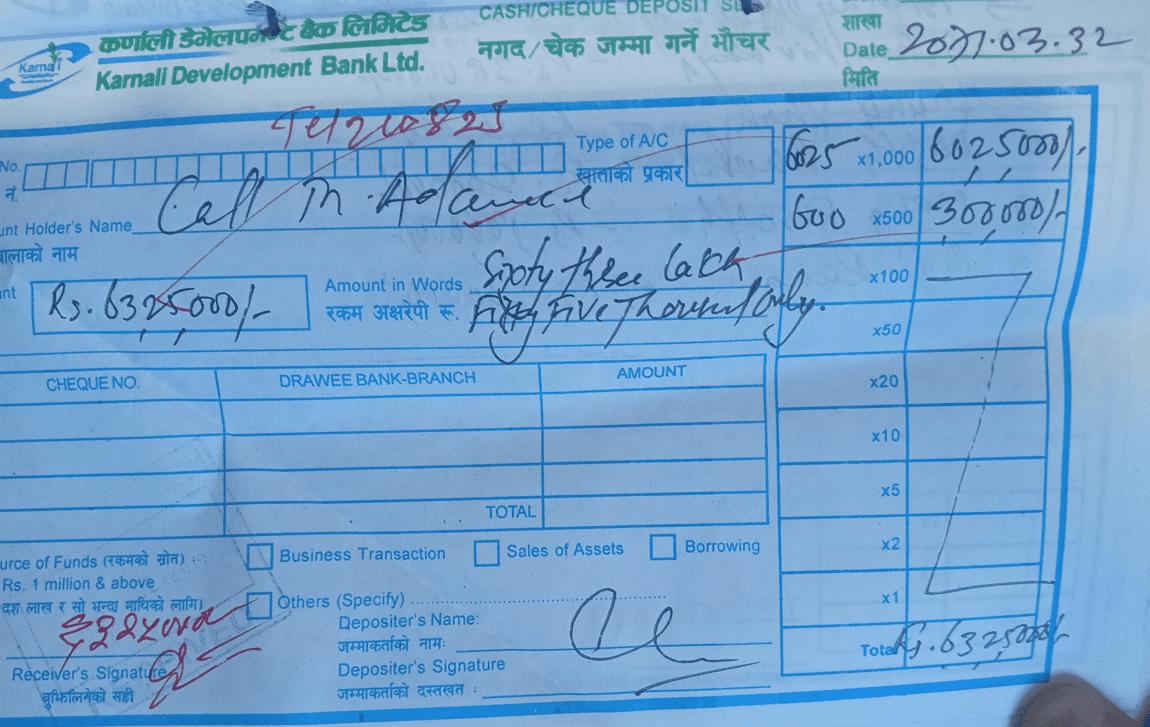 कर्णाली डेभेलपमेन्ट बैंक लिमिटेड
Karnali
Karnali Development Bank Ltd.
CASH/CHEQUE DEPOSIT
नगद/चेक जम्मा गर्ने भौचर
शाखा
Date 2071.03.32
मिति
No.
नं.
Type of A/C
खाताको प्रकार
6025 x1,000 6025000/-
unt Holder's Name Call In Advance
वालाको नाम
600 x500 300,000/-
nt Rs. 6325000/-
Amount in Words Sixty three lakh
रकम अक्षरेपी रू. Five Thousand only.
x100
x50
CHEQUE NO. DRAWEE BANK-BRANCH AMOUNT
x20
x10
x5
TOTAL
x2
urce of Funds (रकमको स्रोत) :
Business Transaction Sales of Assets Borrowing
Rs. 1 million & above
दश लाख र सो भन्दा माथिको लागि)
Others (Specify)
x1
Depositer's Name:
जम्माकर्ताको नामः
Total Rs. 6325000/-
Receiver's Signature
बुझिलिनेको सही
Depositer's Signature
जम्माकर्ताको दस्तखत :